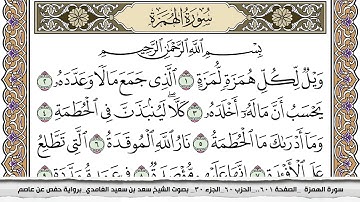 سُورَةُ الهُمَزَةِ
بِسْمِ اللَّهِ الرَّحْمَٰنِ الرَّحِيمِ
وَيْلٌ لِّكُلِّ هُمَزَةٍ لُّمَزَةٍ ١ الَّذِي جَمَعَ مَالًا وَعَدَّدَهُ ٢
يَحْسَبُ أَنَّ مَالَهُ أَخْلَدَهُ ٣ كَلَّا لَيُنبَذَنَّ فِي الْحُطَمَةِ ٤
وَمَا أَدْرَاكَ مَا الْحُطَمَةُ ٥ نَارُ اللَّهِ الْمُوقَدَةُ ٦ الَّتِي تَطَّلِعُ
سورة الهمزة _الصفحة ٦٠١_ الحزب ٦٠_ الجزء ٣٠_ بصوت الشيخ سعد بن سعيد الغامدي_ برواية حفص عن عاصم